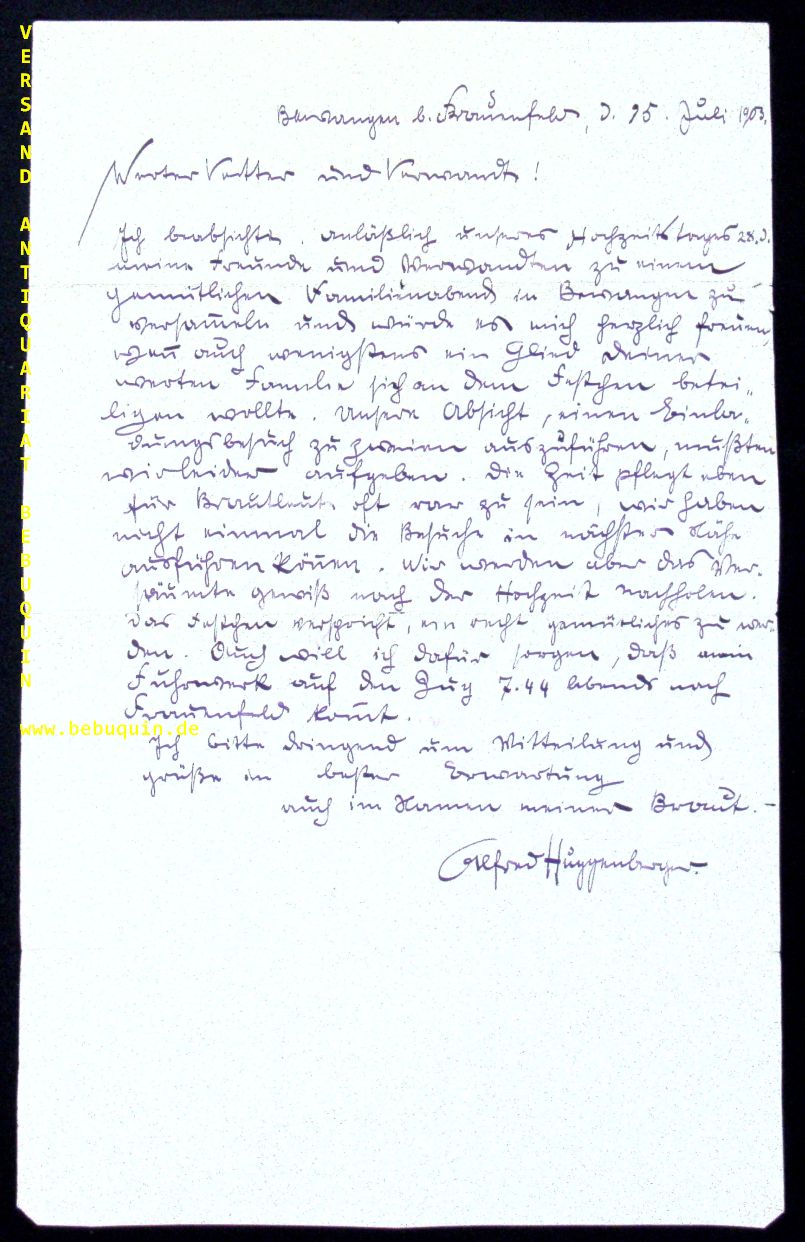 VERSAND ANTIQUARIAT BEBUQUIN
www.bebuquin.de
Bewangen b. Frauenfeld, d. 15. Juli 1903.
Werter Vetter und Verwandte!
Ich beabsichte, anläßlich unseres Hochzeitstages 28. d.
meine Freunde und Verwandten zu einem
gemütlichen Familienabend in Bewangen zu
versam̅eln und würde es mich herzlich freuen,
wen̅ auch wenigstens ein Glied Deiner
werten Familie sich an dem Festchen betei-
ligen wollte. Unsere Absicht, einen Einla-
dungsbesuch zu zweien auszuführen, mußten
wir leider aufgeben. Die Zeit pflegt eben
für Brautleute oft rar zu sein, wir haben
nicht einmal die Besuche in nächster Nähe
ausführen kön̅en. Wir werden aber das Ver-
säumte gewiß nach der Hochzeit nachholen.
Das Festchen verspricht, ein recht gemütliches zu wer-
den. Auch will ich dafür sorgen, daß mein
Fuhrwerk auf den Zug 7.44 abends nach
Frauenfeld kom̅t.
Ich bitte dringend um Mitteilung und
grüße in bester Erwartung
auch im Namen meiner Braut. –
Alfred Huggenberger.